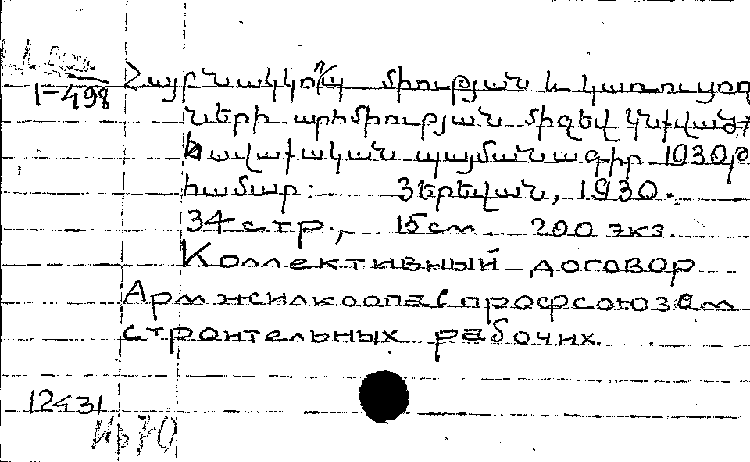 1-498
Հայբնակկոոպ միության և կառուցող
ների արհմիության միջև կնքված
հավաքական պայմանագիր 1930թ
համար: Յերեվան, 1930.
34 стр., 15 см. 200 экз.
Коллективный договор
Армжилкоопа с профсоюзам
строительных рабочих.
12431